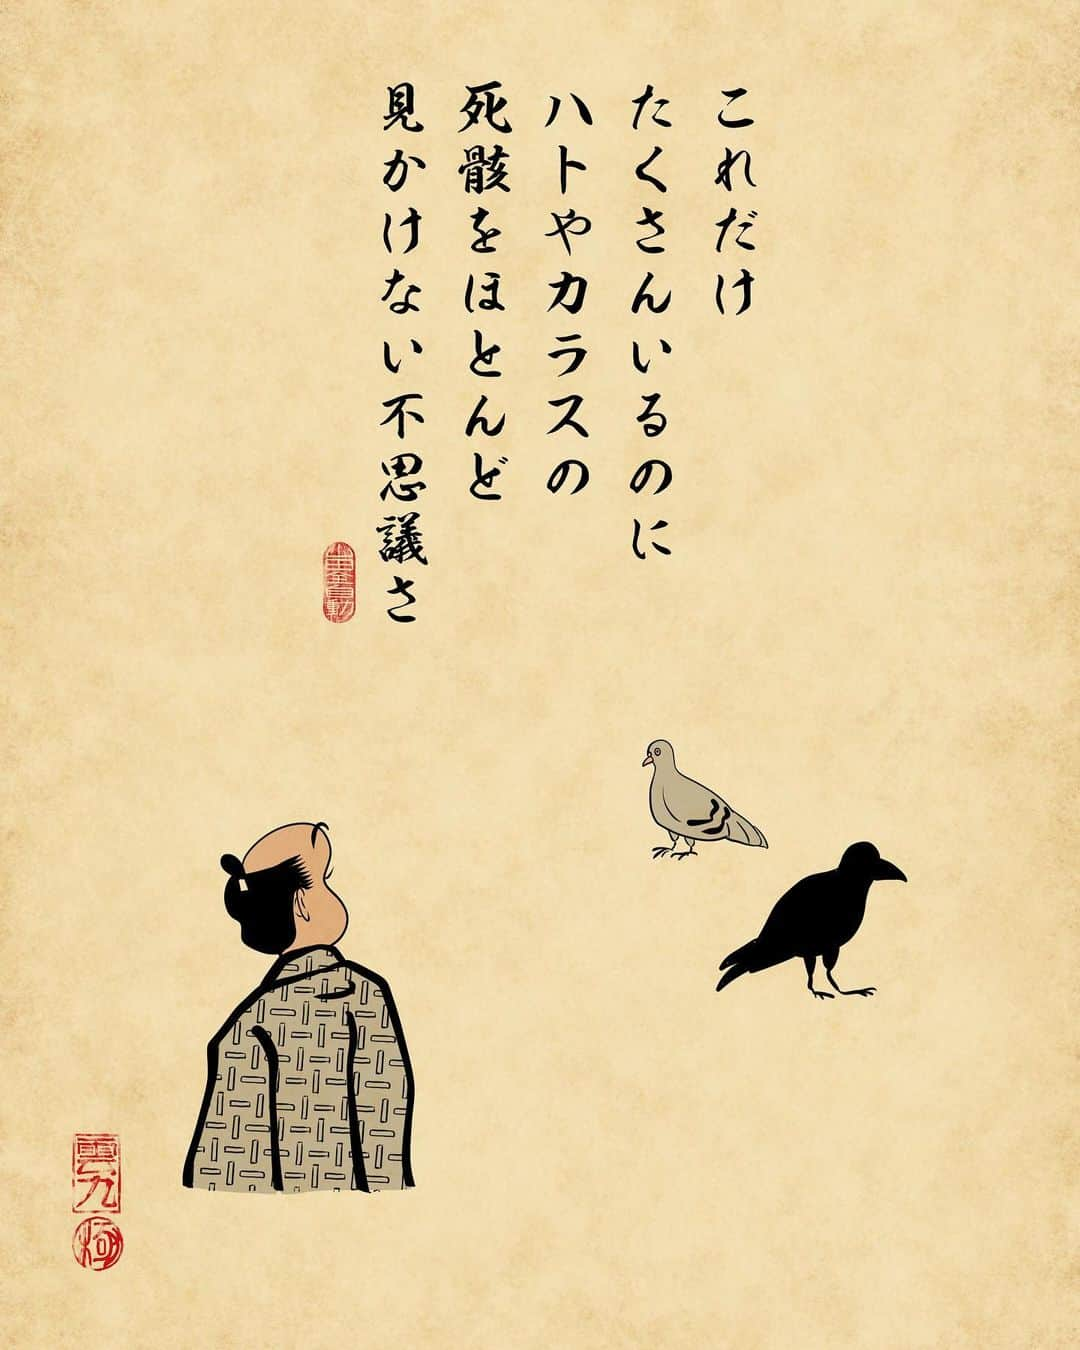 これだけ
たくさんいるのに
ハトやカラスの
死骸をほとんど
見かけない不思議さ